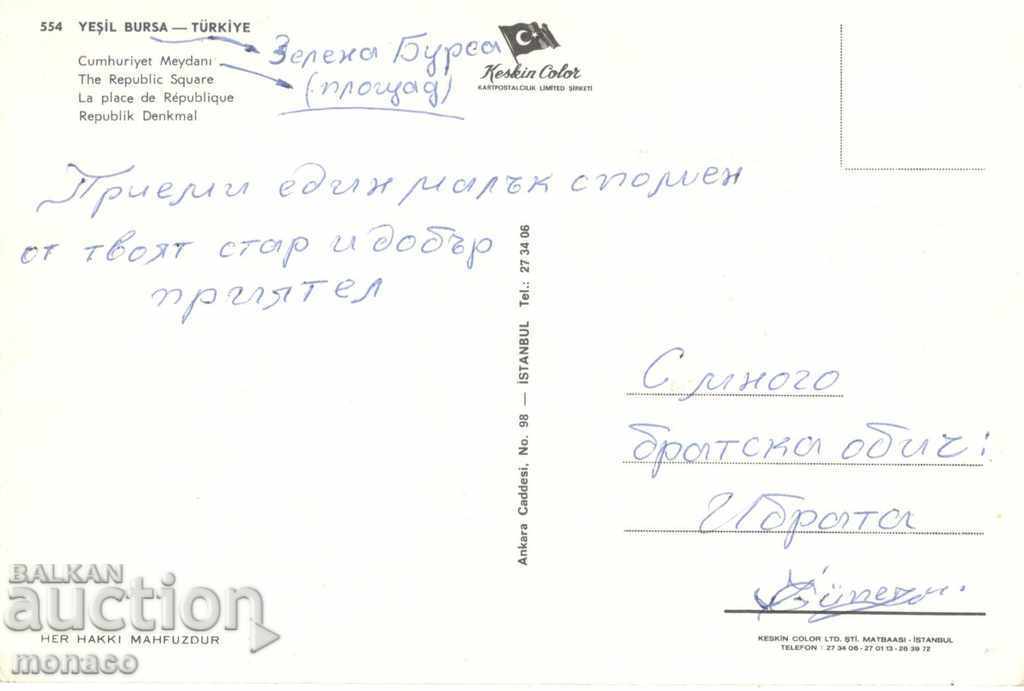 554 YEŞİL BURSA — TÜRKİYE
Зелена Бурса
(площад)
Cumhuriyet Meydanı
The Republic Square
La place de République
Republik Denkmal
Keskin Color
KARTPOSTALCILIK LIMITED ŞİRKETİ
Приеми един малък спомен
от твоят стар и добър
приятел
Ankara Caddesi, No. 98 — İSTANBUL Tel.: 27 34 06
С много
братска обич:
Ибрата
HER HAKKI MAHFUZDUR
KESKİN COLOR LTD. ŞTİ. MATBAASI - İSTANBUL
TELEFON : 27 34 06 - 27 01 13 - 26 39 72
BALKAN
auction
monaco